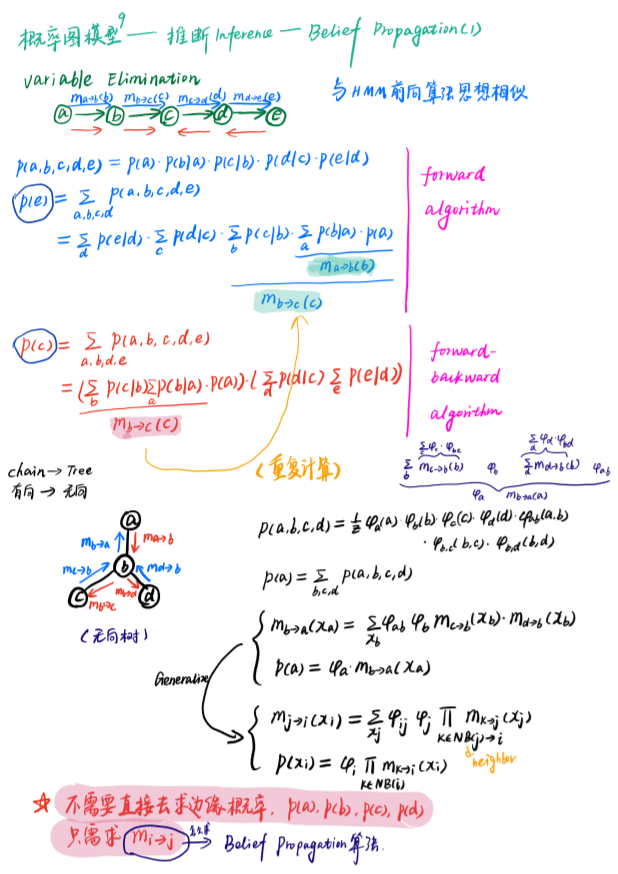 概率图模型9 — 推断 Inference — Belief Propagation(1)
variable Elimination
m_{a→b}(b) m_{b→c}(c) m_{c→d}(d) m_{d→e}(e)
a b c d e
与HMM前向算法思想相似
p(a,b,c,d,e) = p(a)·p(b|a)·p(c|b)·p(d|c)·p(e|d)
p(e) = Σ_{a,b,c,d} p(a,b,c,d,e)
= Σ_d p(e|d)·Σ_c p(d|c)·Σ_b p(c|b)·Σ_a p(b|a)·p(a)
m_{a→b}(b)
m_{b→c}(c)
forward
algorithm
p(c) = Σ_{a,b,d,e} p(a,b,c,d,e)
= (Σ_b p(c|b)Σ_a p(b|a)·p(a))·(Σ_d p(d|c) Σ_e p(e|d))
m_{b→c}(c)
forward-
backward
algorithm
(重复计算)
Σ_c φ_c·φ_{bc} Σ_d φ_d·φ_{bd}
Σ_b m_{c→b}(b) φ_b m_{d→b}(b) φ_{ab}
φ_a m_{b→a}(a)
chain → Tree
有向 → 无向
a
m_{b→a} m_{a→b}
m_{c→b} b m_{d→b}
c m_{b→c} m_{b→d} d
(无向树)
p(a,b,c,d) = 1/Z φ_a(a)·φ_b(b)·φ_c(c)·φ_d(d)·φ_{ab}(a,b)
·φ_{b,c}(b,c)·φ_{b,d}(b,d)
p(a) = Σ_{b,c,d} p(a,b,c,d)
m_{b→a}(x_a) = Σ_{x_b} φ_{ab} φ_b m_{c→b}(x_b)·m_{d→b}(x_b)
p(a) = φ_a·m_{b→a}(x_a)
Generalize
m_{j→i}(x_i) = Σ_{x_j} φ_{ij} φ_j Π_{k∈NB(j)→i} m_{k→j}(x_j)
p(x_i) = φ_i Π_{k∈NB(i)} m_{k→i}(x_i)
neighbor
☆ 不需要直接去求边缘概率, p(a), p(b), p(c), p(d)
只需求 m_{i→j} → Belief Propagation算法.